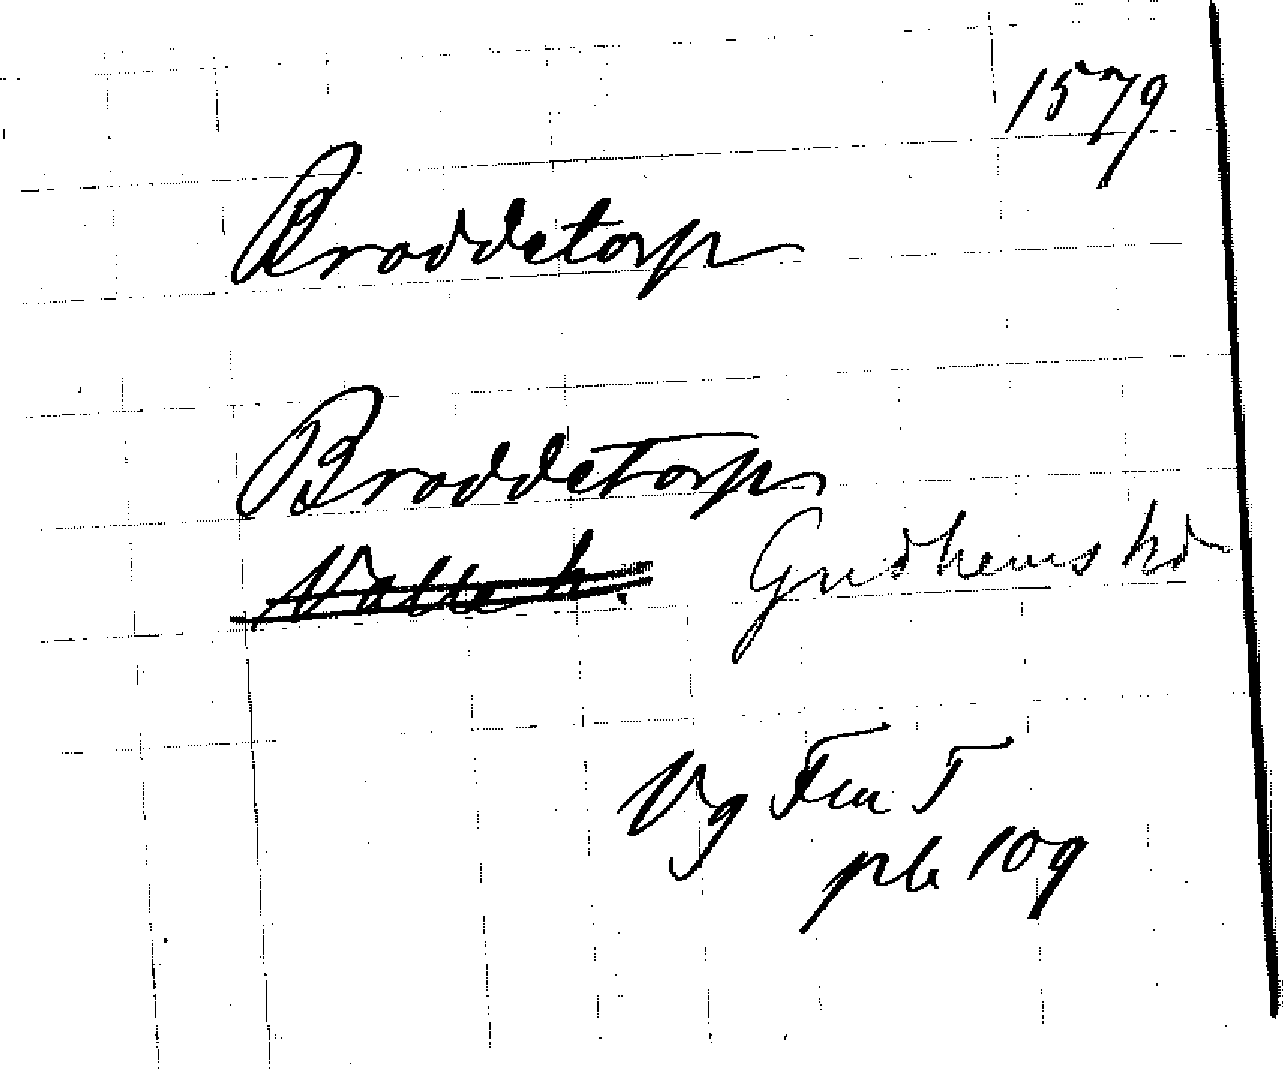 1579
Broddetorp
Broddetorp
Valle h. Gudhems hd
Vg Fru T
pb 109